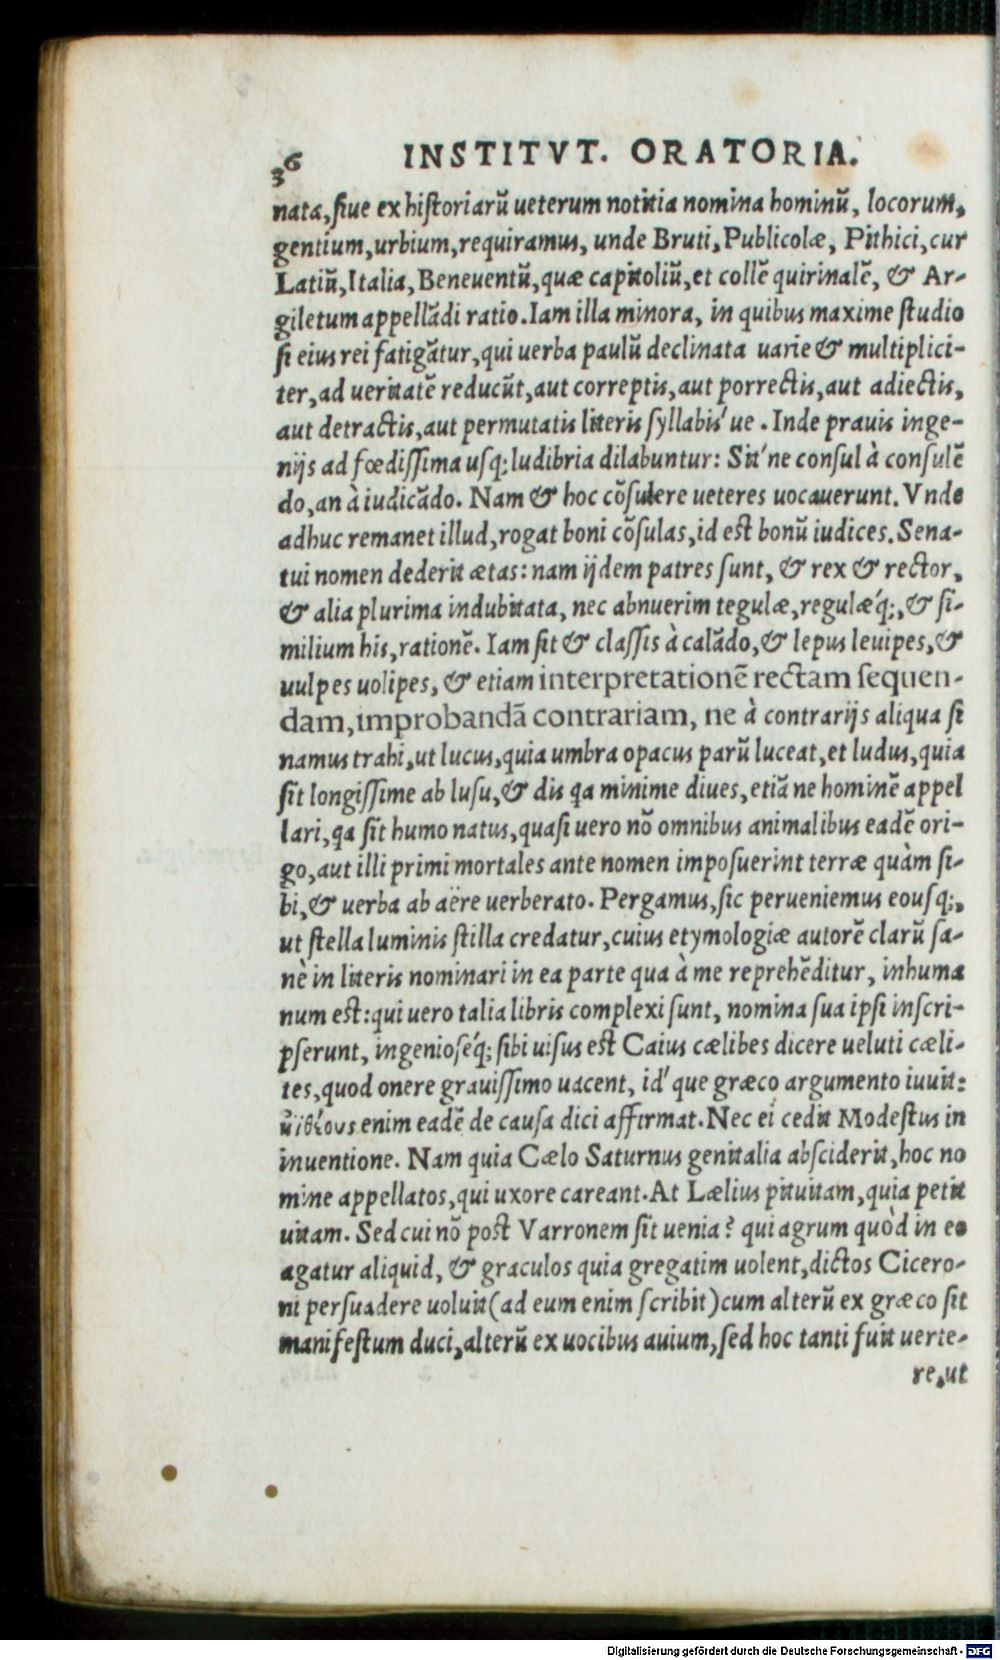 36 INSTITVT. ORATORIA.
nata, siue ex historiarũ ueterum notitia nomina hominũ, locorum,
gentium, urbium, requiramus, unde Bruti, Publicolæ, Pithici, cur
Latiũ, Italia, Beneuentũ, quæ capitoliũ, et collẽ quirinalẽ, & Ar-
giletum appellãdi ratio. Iam illa minora, in quibus maxime studio
si eius rei fatigãtur, qui uerba paulũ declinata uarie & multiplici-
ter, ad ueritatẽ reducũt, aut correptis, aut porrectis, aut adiectis,
aut detractis, aut permutatis literis syllabis'ue. Inde prauis inge-
nijs ad fœdissima usq; ludibria dilabuntur: Sit'ne consul à consulẽ
do, an à iudicãdo. Nam & hoc cõsulere ueteres uocauerunt. Vnde
adhuc remanet illud, rogat boni cõsulas, id est bonũ iudices. Sena-
tui nomen dederit ætas: nam ijdem patres sunt, & rex & rector,
& alia plurima indubitata, nec abnuerim tegulæ, regulæ'q;, & si-
milium his, rationẽ. Iam sit & classis à calãdo, & lepus leuipes, &
uulpes uolipes, & etiam interpretationẽ rectam sequen-
dam, improbandã contrariam, ne à contrarijs aliqua si
namus trahi, ut lucus, quia umbra opacus parũ luceat, et ludus, quia
sit longissime ab lusu, & dis qa minime diues, etiã ne hominẽ appel
lari, qa sit humo natus, quasi uero nõ omnibus animalibus eadẽ ori-
go, aut illi primi mortales ante nomen imposuerint terræ quàm si-
bi, & uerba ab aëre uerberato. Pergamus, sic perueniemus eousq;,
ut stella luminis stilla credatur, cuius etymologiæ autorẽ clarũ sa-
nè in literis nominari in ea parte qua à me reprehẽditur, inhuma
num est: qui uero talia libris complexi sunt, nomina sua ipsi inscri-
pserunt, ingeniose'q; sibi uisus est Caius cælibes dicere ueluti cæli-
tes, quod onere grauissimo uacent, id'que græco argumento iuuit:
ἠϊθέους enim eadẽ de causa dici affirmat. Nec ei cedit Modestus in
inuentione. Nam quia Cælo Saturnus genitalia absciderit, hoc no
mine appellatos, qui uxore careant. At Lælius pituitam, quia petit
uitam. Sed cui nõ post Varronem sit uenia? qui agrum quòd in eo
agatur aliquid, & graculos quia gregatim uolent, dictos Cicero-
ni persuadere uoluit (ad eum enim scribit) cum alterũ ex græco sit
manifestum duci, alterũ ex uocibus auium, sed hoc tanti fuit uerte-
re, ut
Digitalisierung gefördert durch die Deutsche Forschungsgemeinschaft - DFG